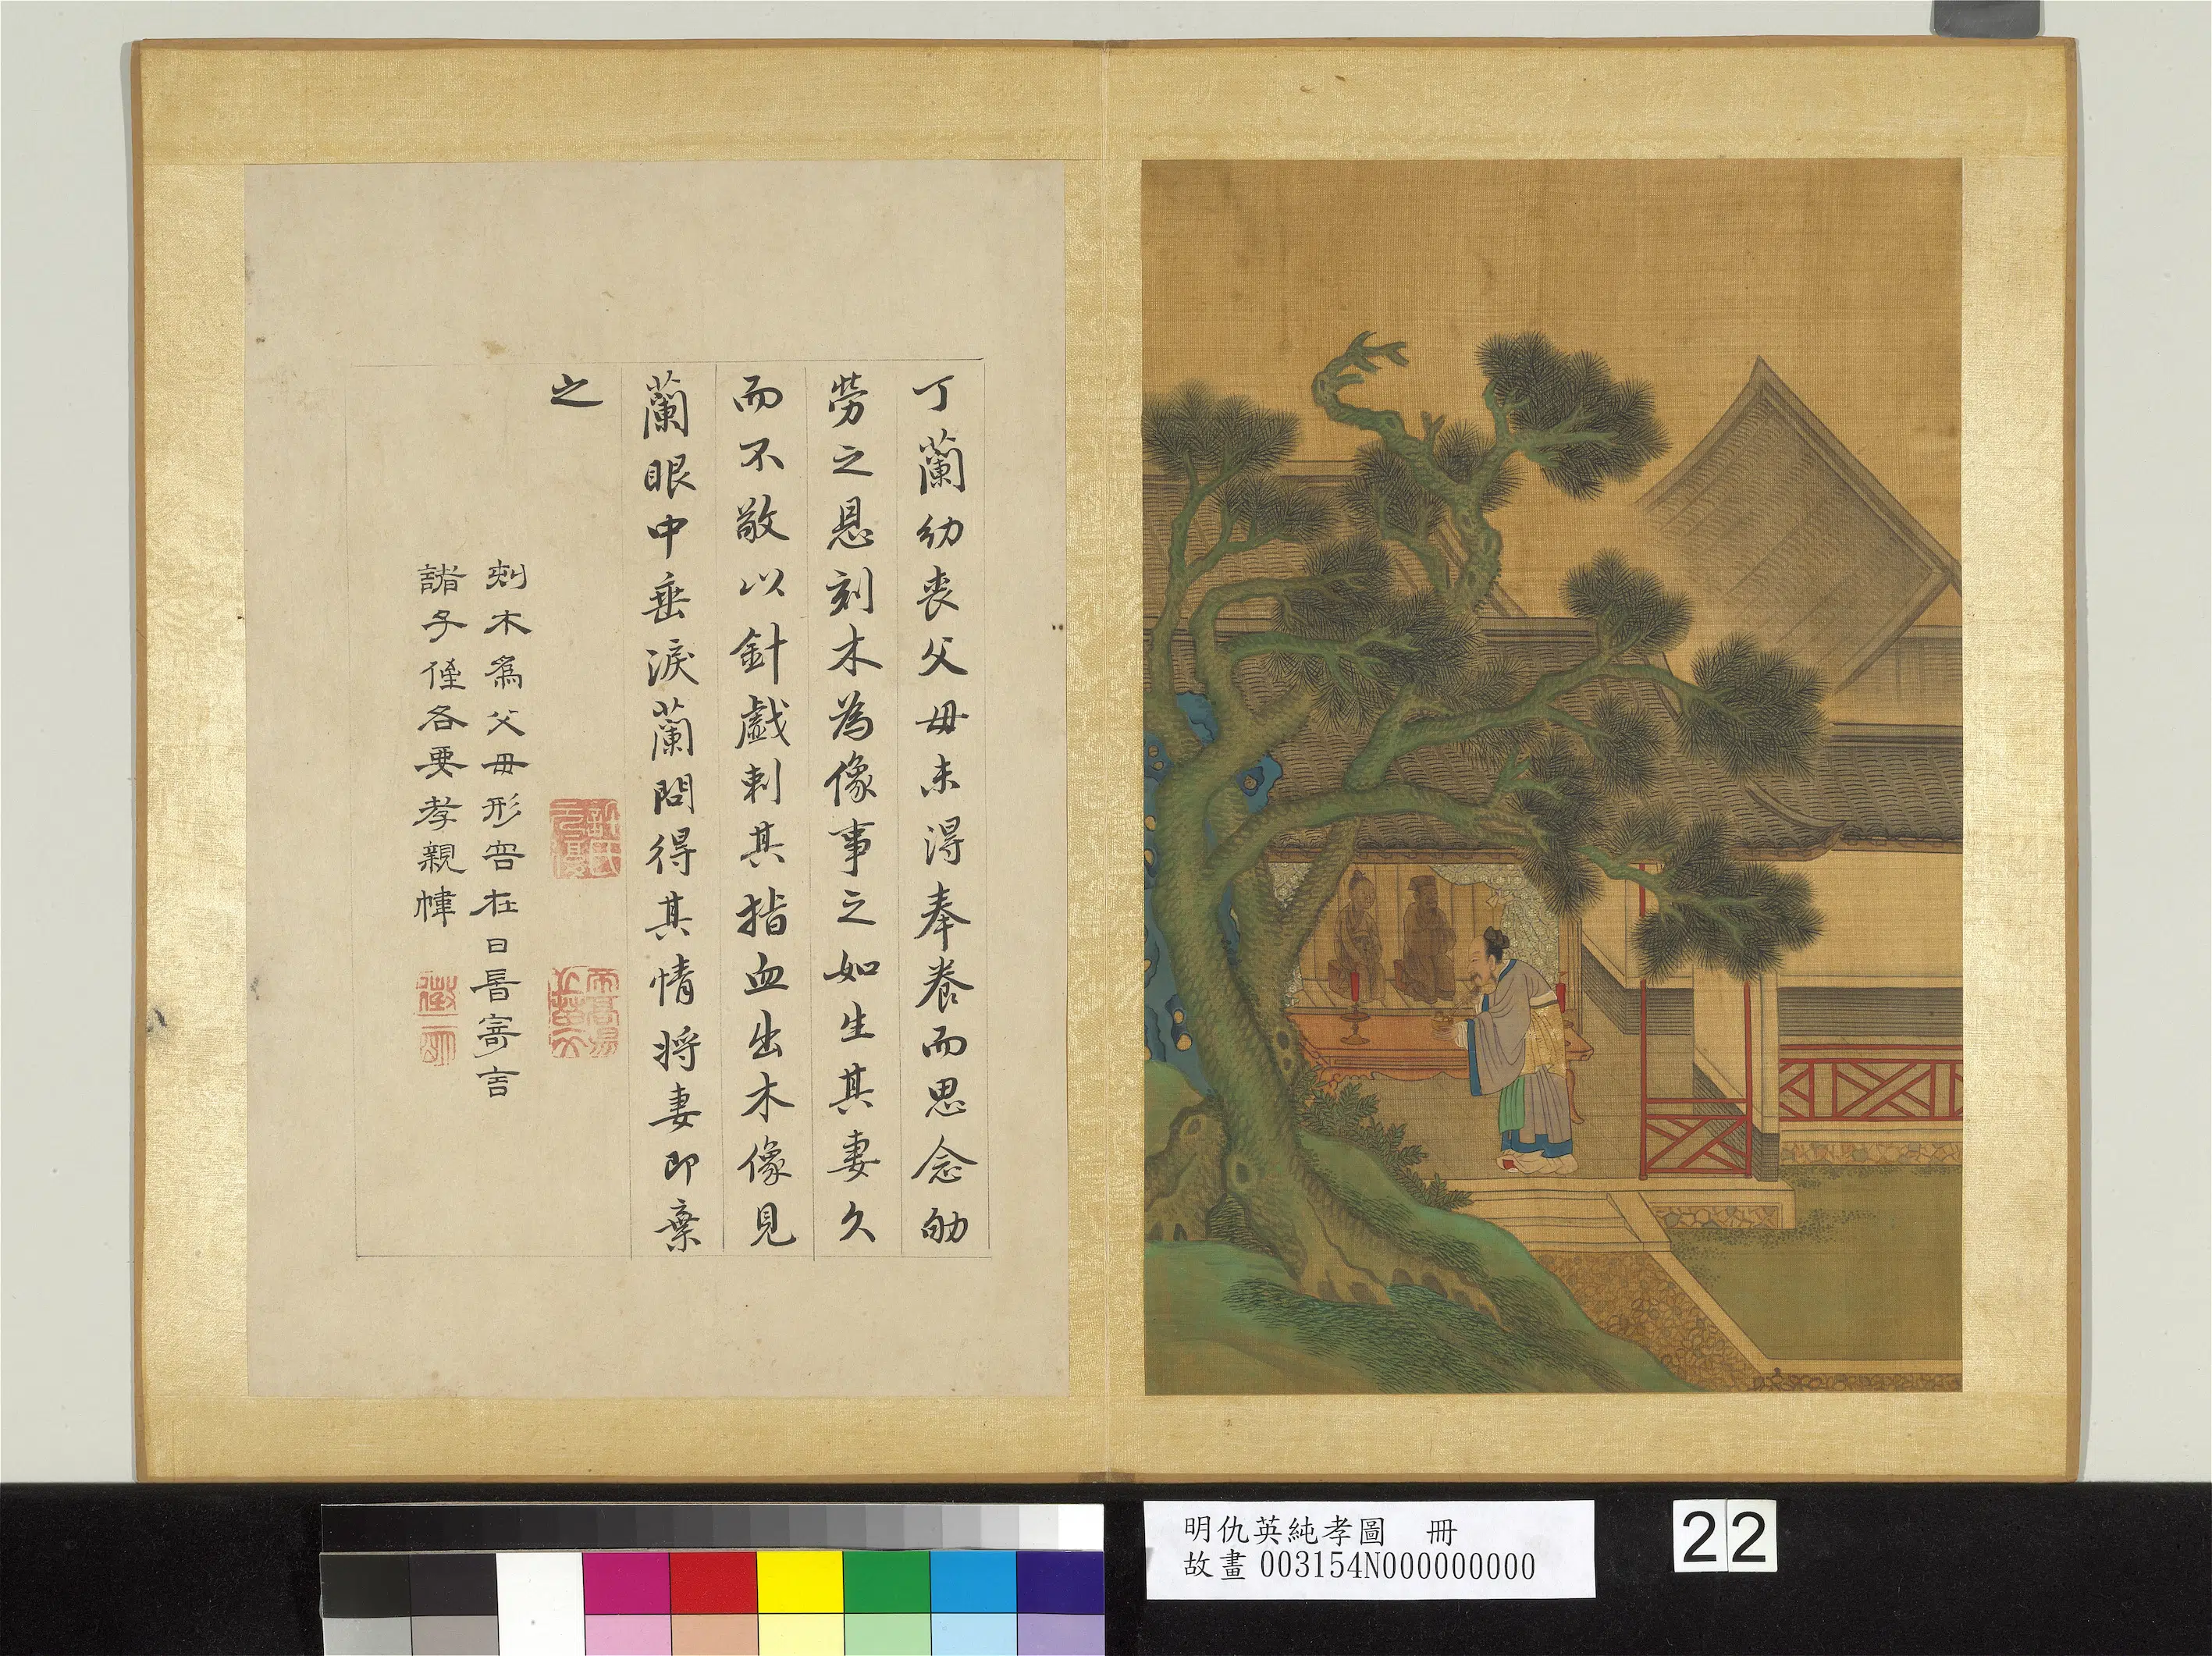 丁蘭幼丧父母未得奉養而思念劬
劳之恩刻木為像事之如生其妻久
而不敬以針戲刺其指血出木像見
蘭眼中垂淚蘭問得其情将妻即棄
之
刻木為父母形容在日旹寄言
諸子侄各要孝親幃
明仇英純孝圖 冊
故畫 003154N000000000
22